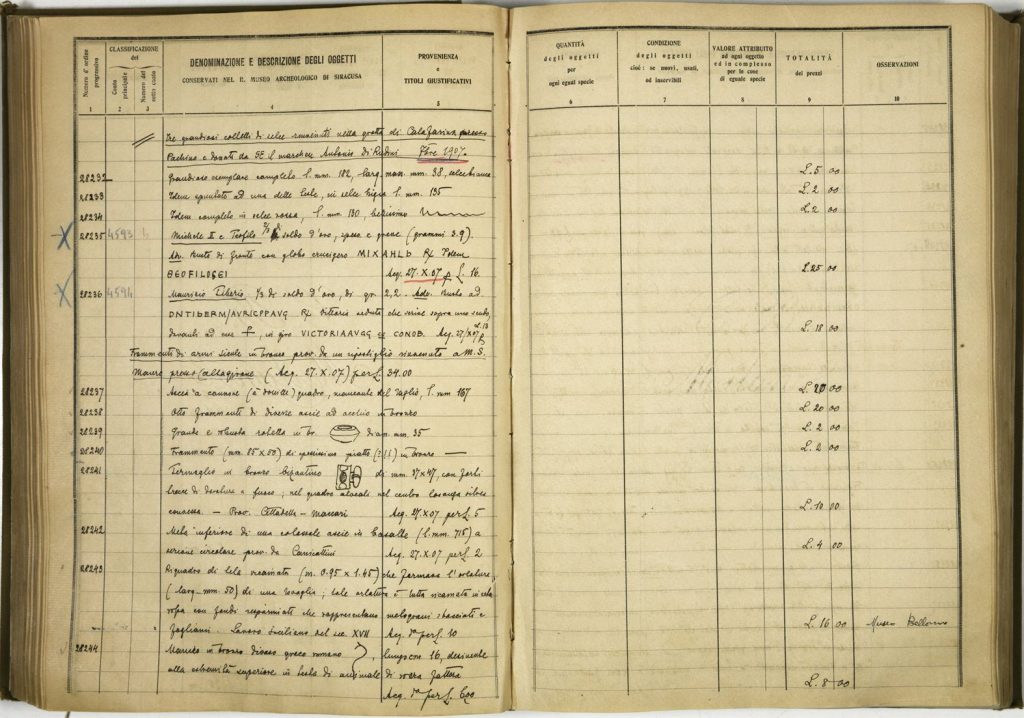 Numero d'ordine progressivo
CLASSIFICAZIONE del
Conto principale
Numero del sotto conto
DENOMINAZIONE E DESCRIZIONE DEGLI OGGETTI
CONSERVATI NEL R. MUSEO ARCHEOLOGICO DI SIRACUSA
PROVENIENZA
e
TITOLI GIUSTIFICATIVI
QUANTITÀ
degli oggetti
per
ogni egual specie
CONDIZIONE
degli oggetti
cioè: se nuovi, usati,
od inservibili
VALORE ATTRIBUITO
ad ogni oggetto
ed in complesso
per le cose
di eguale specie
TOTALITÀ
dei prezzi
OSSERVAZIONI
1 2 3 4 5 6 7 8 9 10
Tre grandiosi coltelli di selce rinvenuti nella grotta di Calafarina presso
Pachino e donati da SE il marchese Antonio Di Rudinì 1907.
28232 Grandioso esemplare completo l. mm. 182, larg. mass. mm. 38, selce bianca L. 5 00
28233 Idem spuntato ad una delle teste, in selce bigia l. mm. 135 L. 2 00
28234 Idem completo in selce rossa, l. mm. 130 bellissimo L. 2 00
28235 4593 Michele II e Teofilo soldo d'oro, spesso e greve (grammi 3.9).
Adv. Busto di fronte con globo crucigero MIXAHLB Rx Idem
ΘEOFILOSEI Acq. 27. X. 07 p £. 16. L. 25 00
28236 4594 Maurizio Tiberio 1/3 di soldo d'oro, di gr. 2,2. Adv. Busto ad
DNTIBERM/AVRICPPAVG Rx Vittoria seduta che scrive sopra uno scudo,
davanti ad esse +, in giro VICTORIAAVGG ex CONOB. Acq. 27/X07 p £. 13 L. 18 00
Frammenti di armi sicule in bronzo prov. da un ripostiglio rinvenuto a M. S.
Mauro presso Caltagirone (Acq. 27. X. 07) per £ 34.00
28237 Ascia a cannone (a douille) quadro, mancante del taglio, l. mm 167 L. 20 00
28238 Otto frammenti di diverse ascie ad occhio in bronzo L. 20 00
28239 Grande e robusta in br. diam. mm. 35 L. 2 00
28240 Frammento (mm. 85 x 50) di spessissimo piatto (?!!) in bronzo L. 2 00
28241 Fermaglio in bronzo bizantino di mm. 37x47, con forti
tracce di doratura a fuoco; nel quadro nel centro losanga
convessa. — Prov. Cittadella - Maccari Acq. 27.X.07 per £. 5 L. 10 00
28242 Metà inferiore di una colossale ascia in basalto (l. mm. 715) a
sezione circolare prov. da Canicattini Acq. 27. X. 07 per £. 2 L. 4 00
28243 Riquadro di tela ricamata (m. 0.95 x 1.45) che formava l'orlatura
(larg. mm. 50) di una tovaglia; tale orlatura è tutta ricamata in seta
rossa con fondi risparmiati che rappresentano melograni e
fogliami. Lavoro siciliano del sec. XVII Acq. per £. 10 L. 16 00 Museo Bellomo
28244 Manico in bronzo di vaso greco romano, lungo cm 16, desinente
alla estremità superiore in testa di animale di rozza fattura
Acq. per £. 6.00 L. 8 00